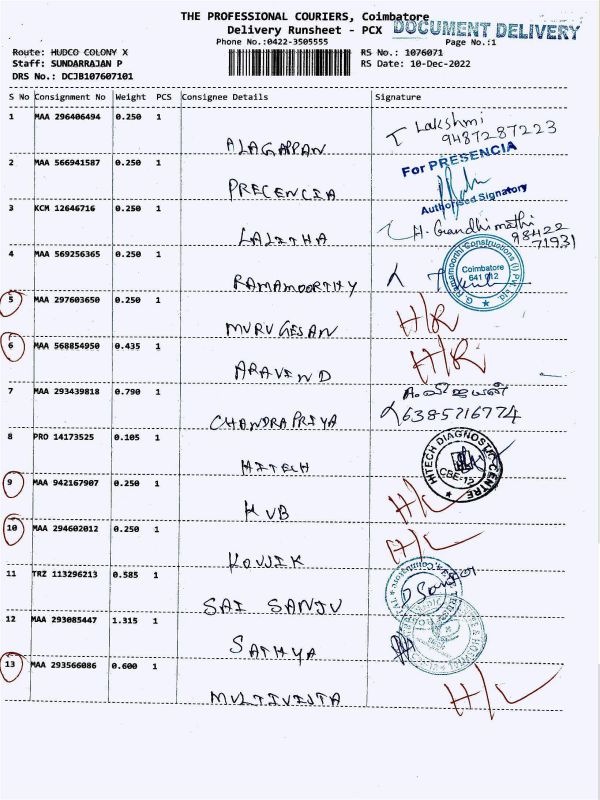 THE PROFESSIONAL COURIERS, Coimbatore
Delivery Runsheet - PCX
DOCUMENT DELIVERY
Phone No.:0422-3505555
Page No.:1
Route: HUDCO COLONY X
RS No.: 1076071
Staff: SUNDARRAJAN P
RS Date: 10-Dec-2022
DRS No.: DCJB107607101
S No Consignment No Weight PCS Consignee Details Signature
1 MAA 296406494 0.250 1
ALAGAPPAN
Lakshmi
9487287223
2 MAA 566941587 0.250 1
PRECENCIA
For PRESENCIA
Authorised Signatory
3 KCM 12646716 0.250 1
LALITHA
H. Gandhimathi
98422
71931
4 MAA 569256365 0.250 1
RAMAMOORTHY
G. Ramamoorthi Constructions (I) Pvt. Ltd.
Coimbatore
641 012
5 MAA 297603650 0.250 1
MURUGESAN
H/R
6 MAA 568854950 0.435 1
ARAVIND
H/R
7 MAA 293439818 0.790 1
CHANDRAPRIYA
6385716774
8 PRO 14173525 0.105 1
HITECH
HITECH DIAGNOSTIC CENTRE
CBE-15
9 MAA 942167907 0.250 1
KVB
H/L
10 MAA 294602012 0.250 1
KOUSIK
H/L
11 TRZ 113296213 0.585 1
SAI SANJU
12 MAA 293085447 1.315 1
SATHYA
13 MAA 293566086 0.600 1
MULTIVISTA
H/L